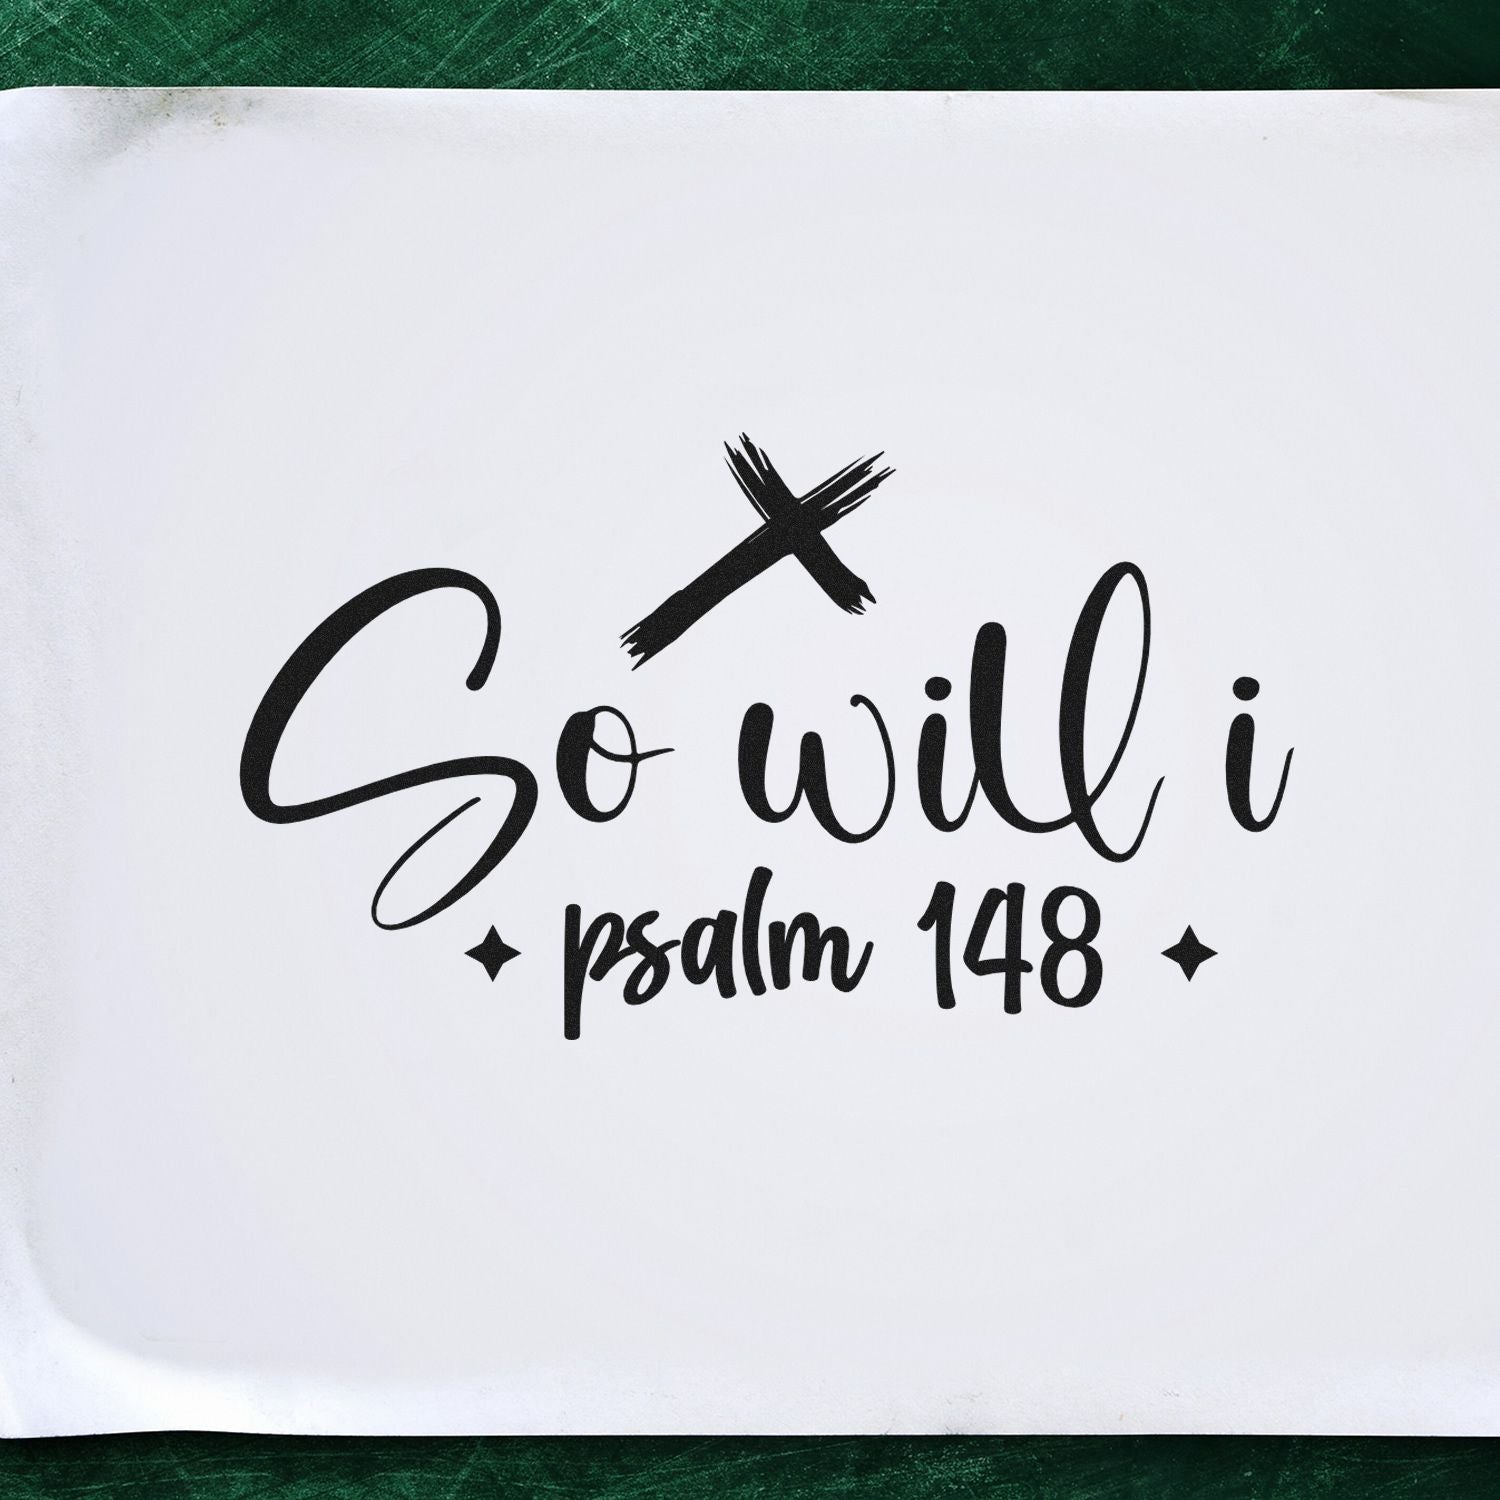 So will i
psalm 148